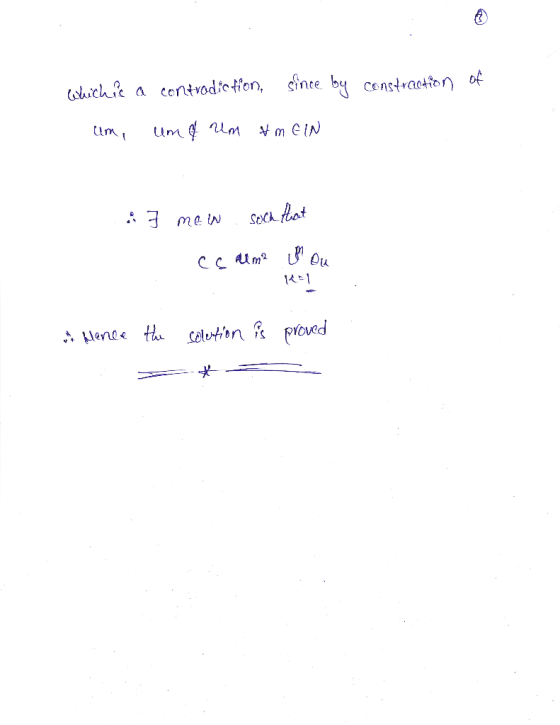 which is a contradiction, since by constraction of
um, um ∉ Um ∀ m ∈ IN
∴ ∃ m ∈ IN such that
C ⊆ Um =
m
∪ Ok
k=1
∴ Hence the solution is proved